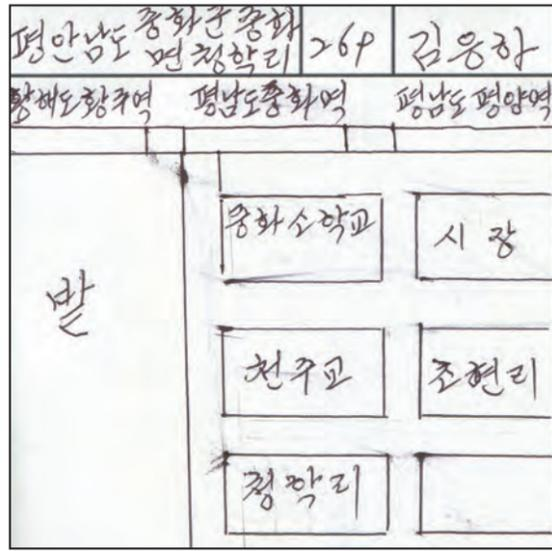 평안남도 중화군 중화
면 청학리
269
김응하
황해도황주역 평남도중화역 평남도 평양역
중화소학교 시장
밭
천주교 초현리
청학리